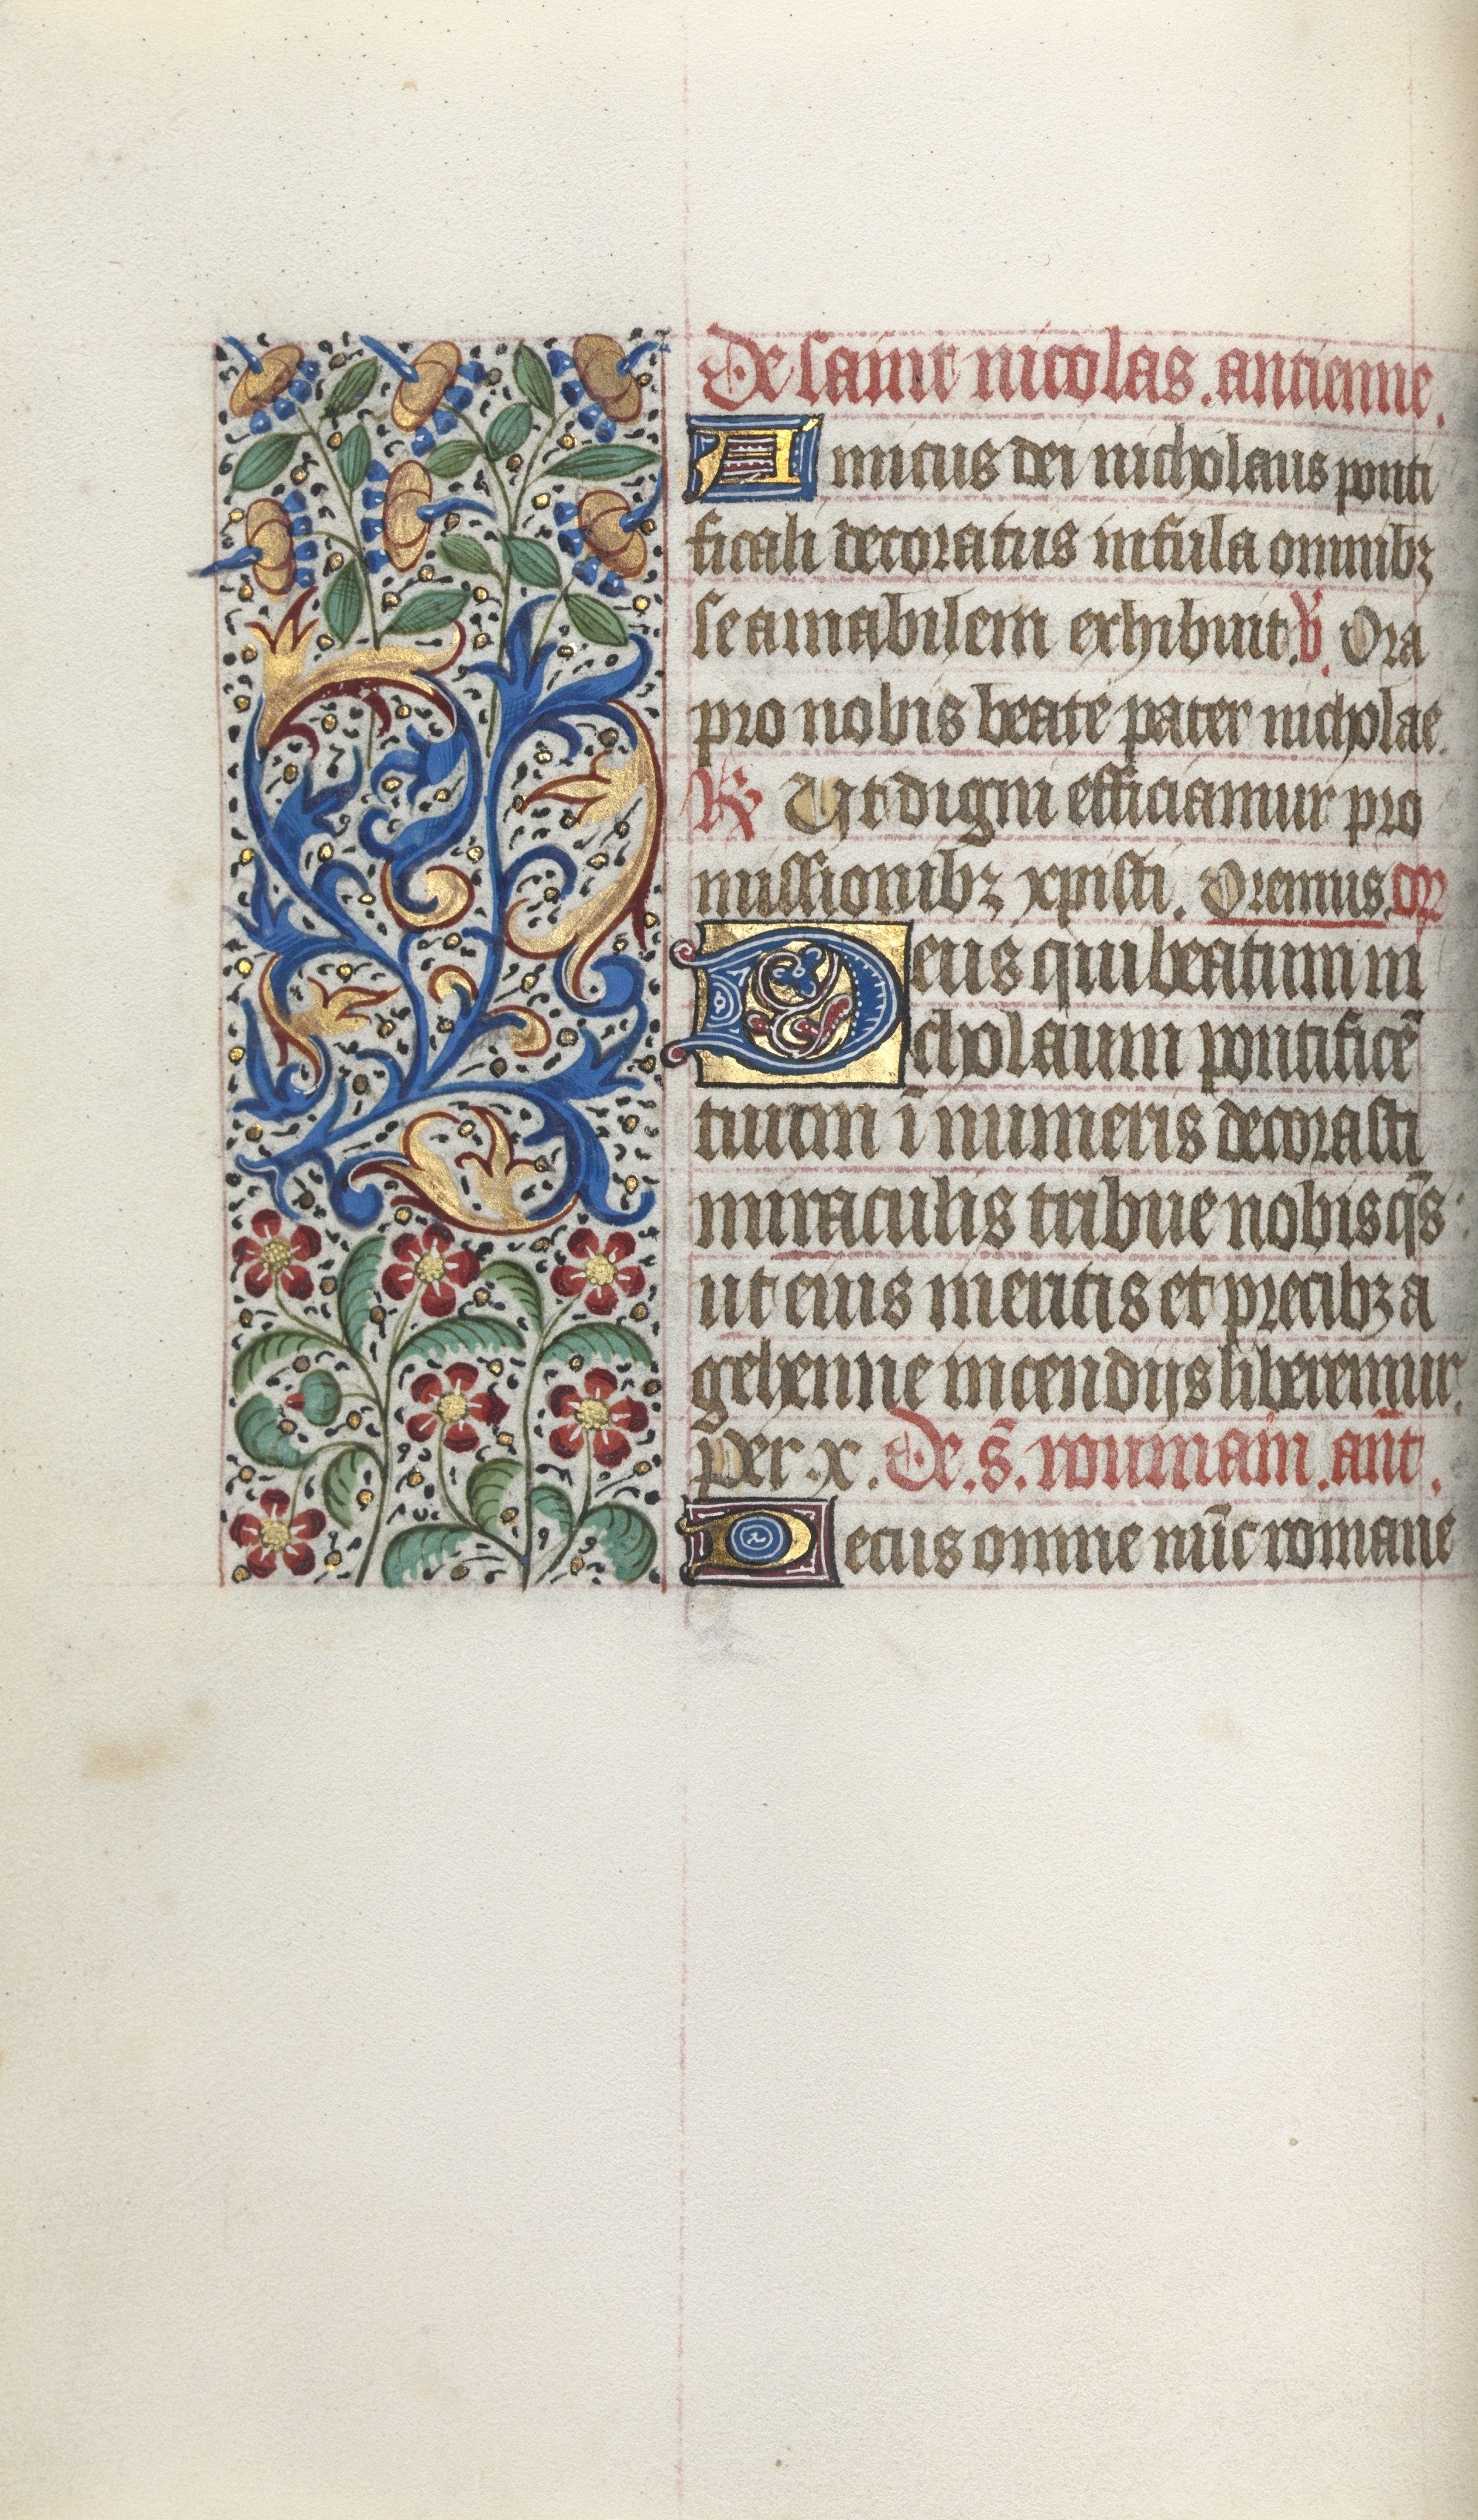 De saint nicolas . antienne .
Amicus dei nicholaus ponti
ficali decoratus infula omnibz
se amabilem exhibuit . ℣. Ora
pro nobis beate pater nicholae .
℟ Ut digni efficiamur pro
missionibz xpisti . Oremus . or̃
Deus qui beatum ni
cholaum pontificē
tuum ī numeris decorasti
miraculis tribue nobis qs̄
ut eius meritis et precibz a
gehenne incendijs liberemur .
per . x . De . s̄ . roumain . ant̄ .
Decus omne nūc romane